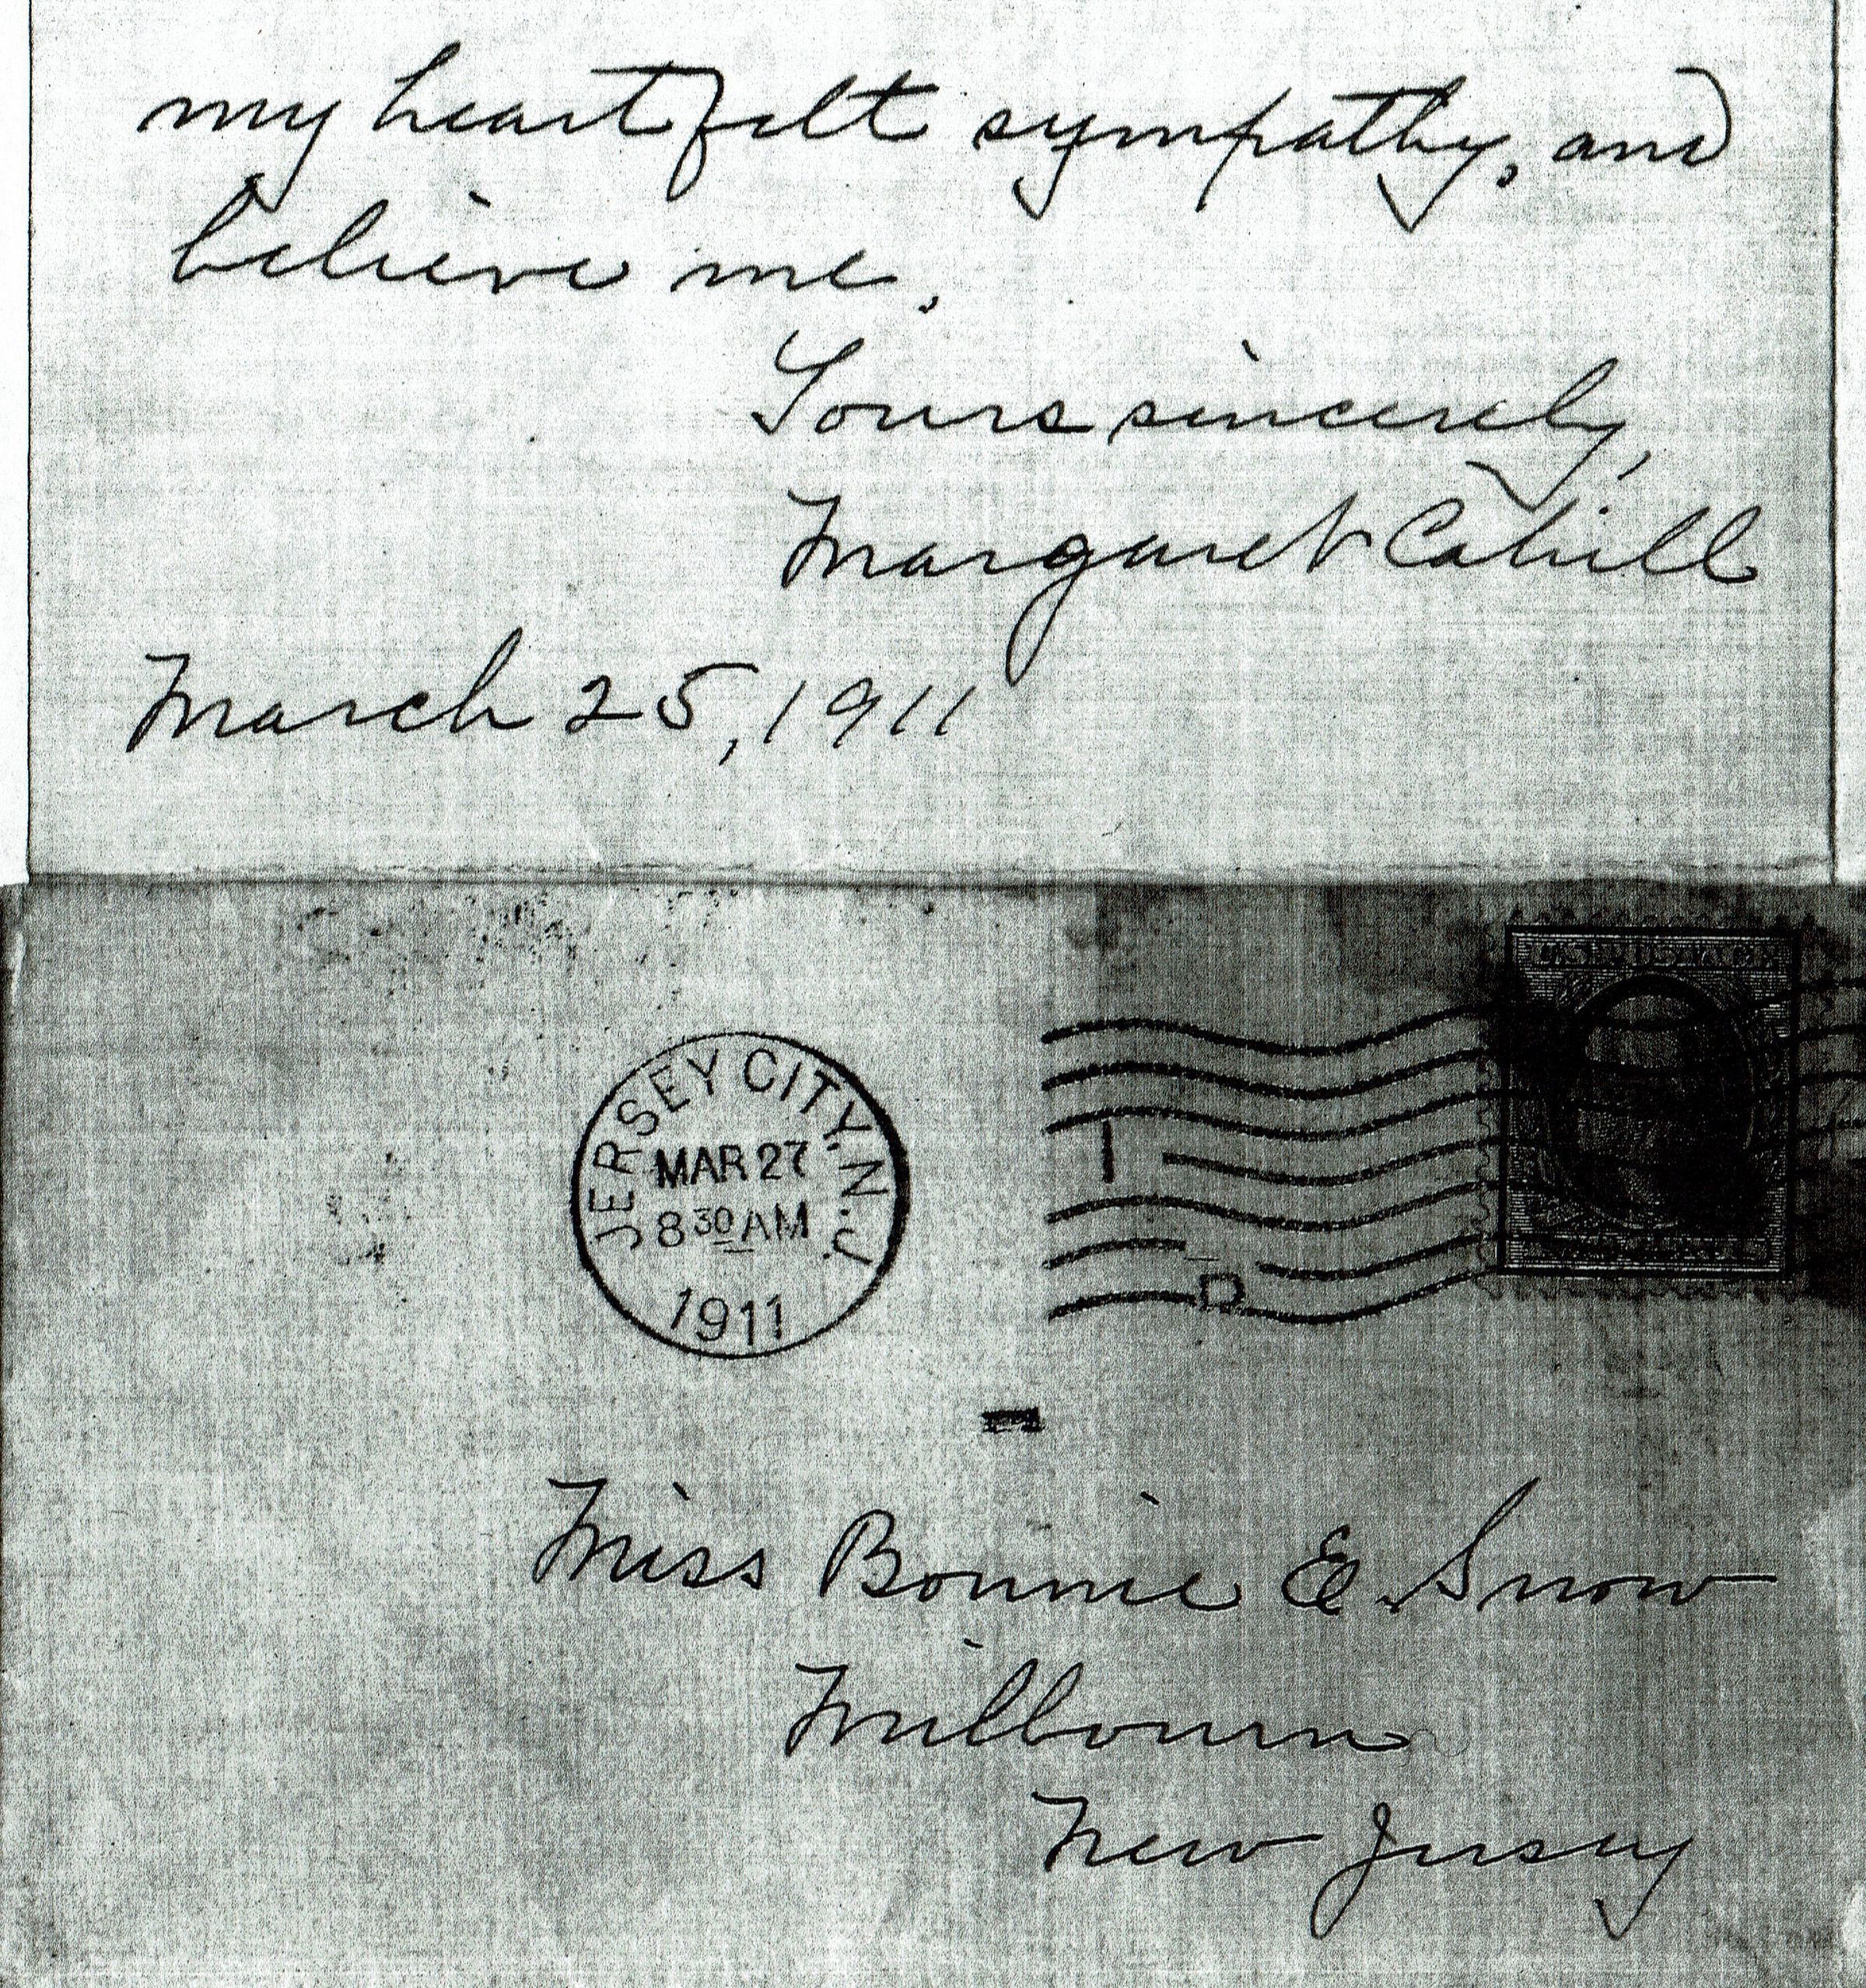 my heartfelt sympathy, and
believe me,
Yours sincerely,
Margaret Cahill
March 25, 1911
JERSEY CITY, N.J.
MAR 27
8 30 AM
1911
1
D
Miss Bonnie E. Snow
Milbourn
New Jersey